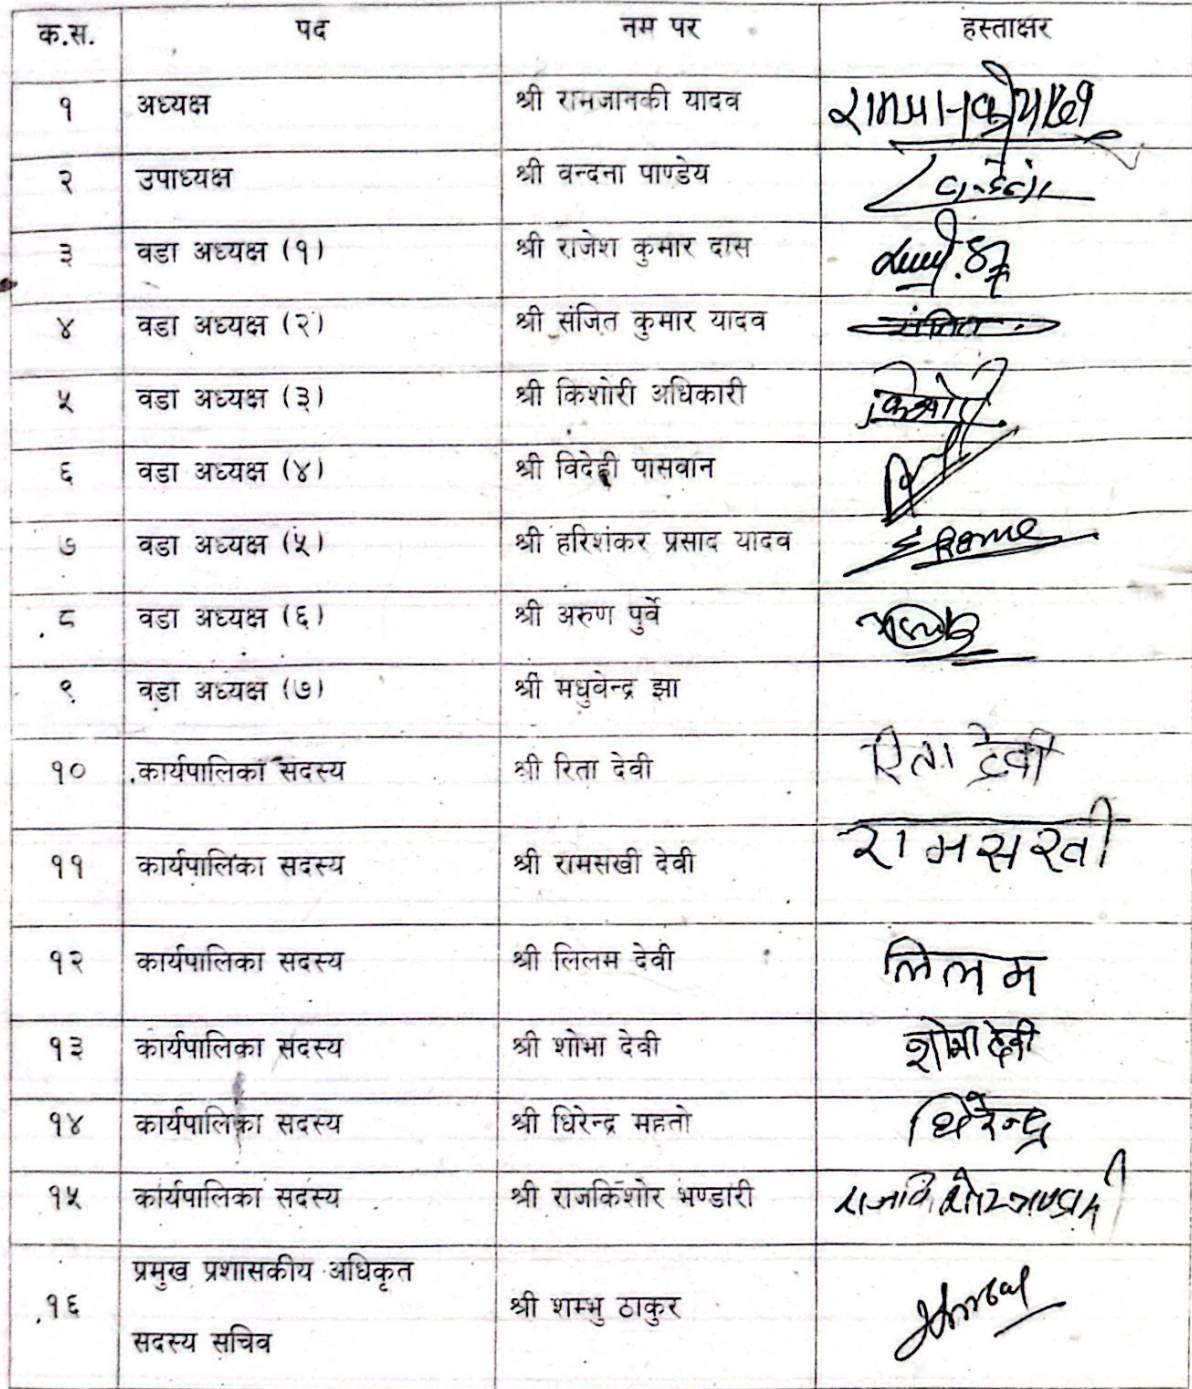 क.स. पद नम पर हस्ताक्षर
१ अध्यक्ष श्री रामजानकी यादव
२ उपाध्यक्ष श्री वन्दना पाण्डेय
३ वडा अध्यक्ष (१) श्री राजेश कुमार दास
४ वडा अध्यक्ष (२) श्री संजित कुमार यादव संजित
५ वडा अध्यक्ष (३) श्री किशोरी अधिकारी किशोरी
६ वडा अध्यक्ष (४) श्री विदेही पासवान
७ वडा अध्यक्ष (५) श्री हरिशंकर प्रसाद यादव
८ वडा अध्यक्ष (६) श्री अरुण पुर्वे
९ वडा अध्यक्ष (७) श्री मधुवेन्द्र झा
१० कार्यपालिका सदस्य श्री रिता देवी रिता देवी
११ कार्यपालिका सदस्य श्री रामसखी देवी रामसखी
१२ कार्यपालिका सदस्य श्री लिलम देवी लिलम
१३ कार्यपालिका सदस्य श्री शोभा देवी शोभा देवी
१४ कार्यपालिका सदस्य श्री धिरेन्द्र महतो धिरेन्द्र
१५ कार्यपालिका सदस्य श्री राजकिशोर भण्डारी
प्रमुख प्रशासकीय अधिकृत
१६ श्री शम्भु ठाकुर
सदस्य सचिव